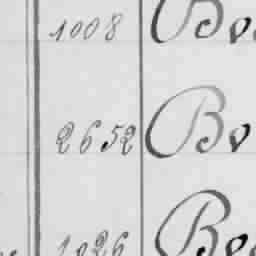 1008 Bo
2652 Bo
1026 Bo